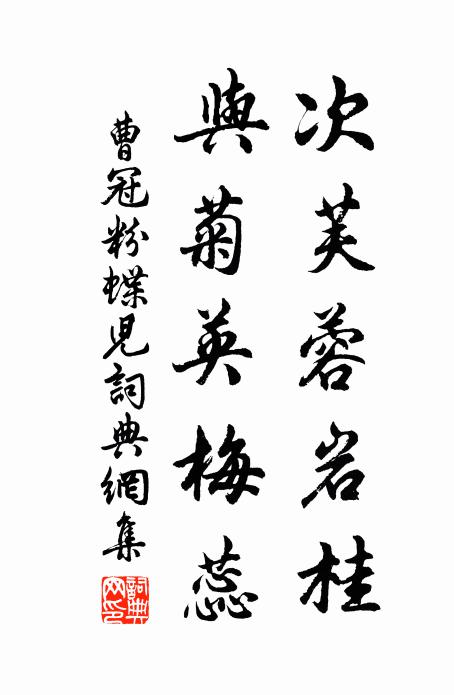 次芙蓉岩桂
與菊英梅蕊
曹冠粉蝶兒詞典網集
詞典網印